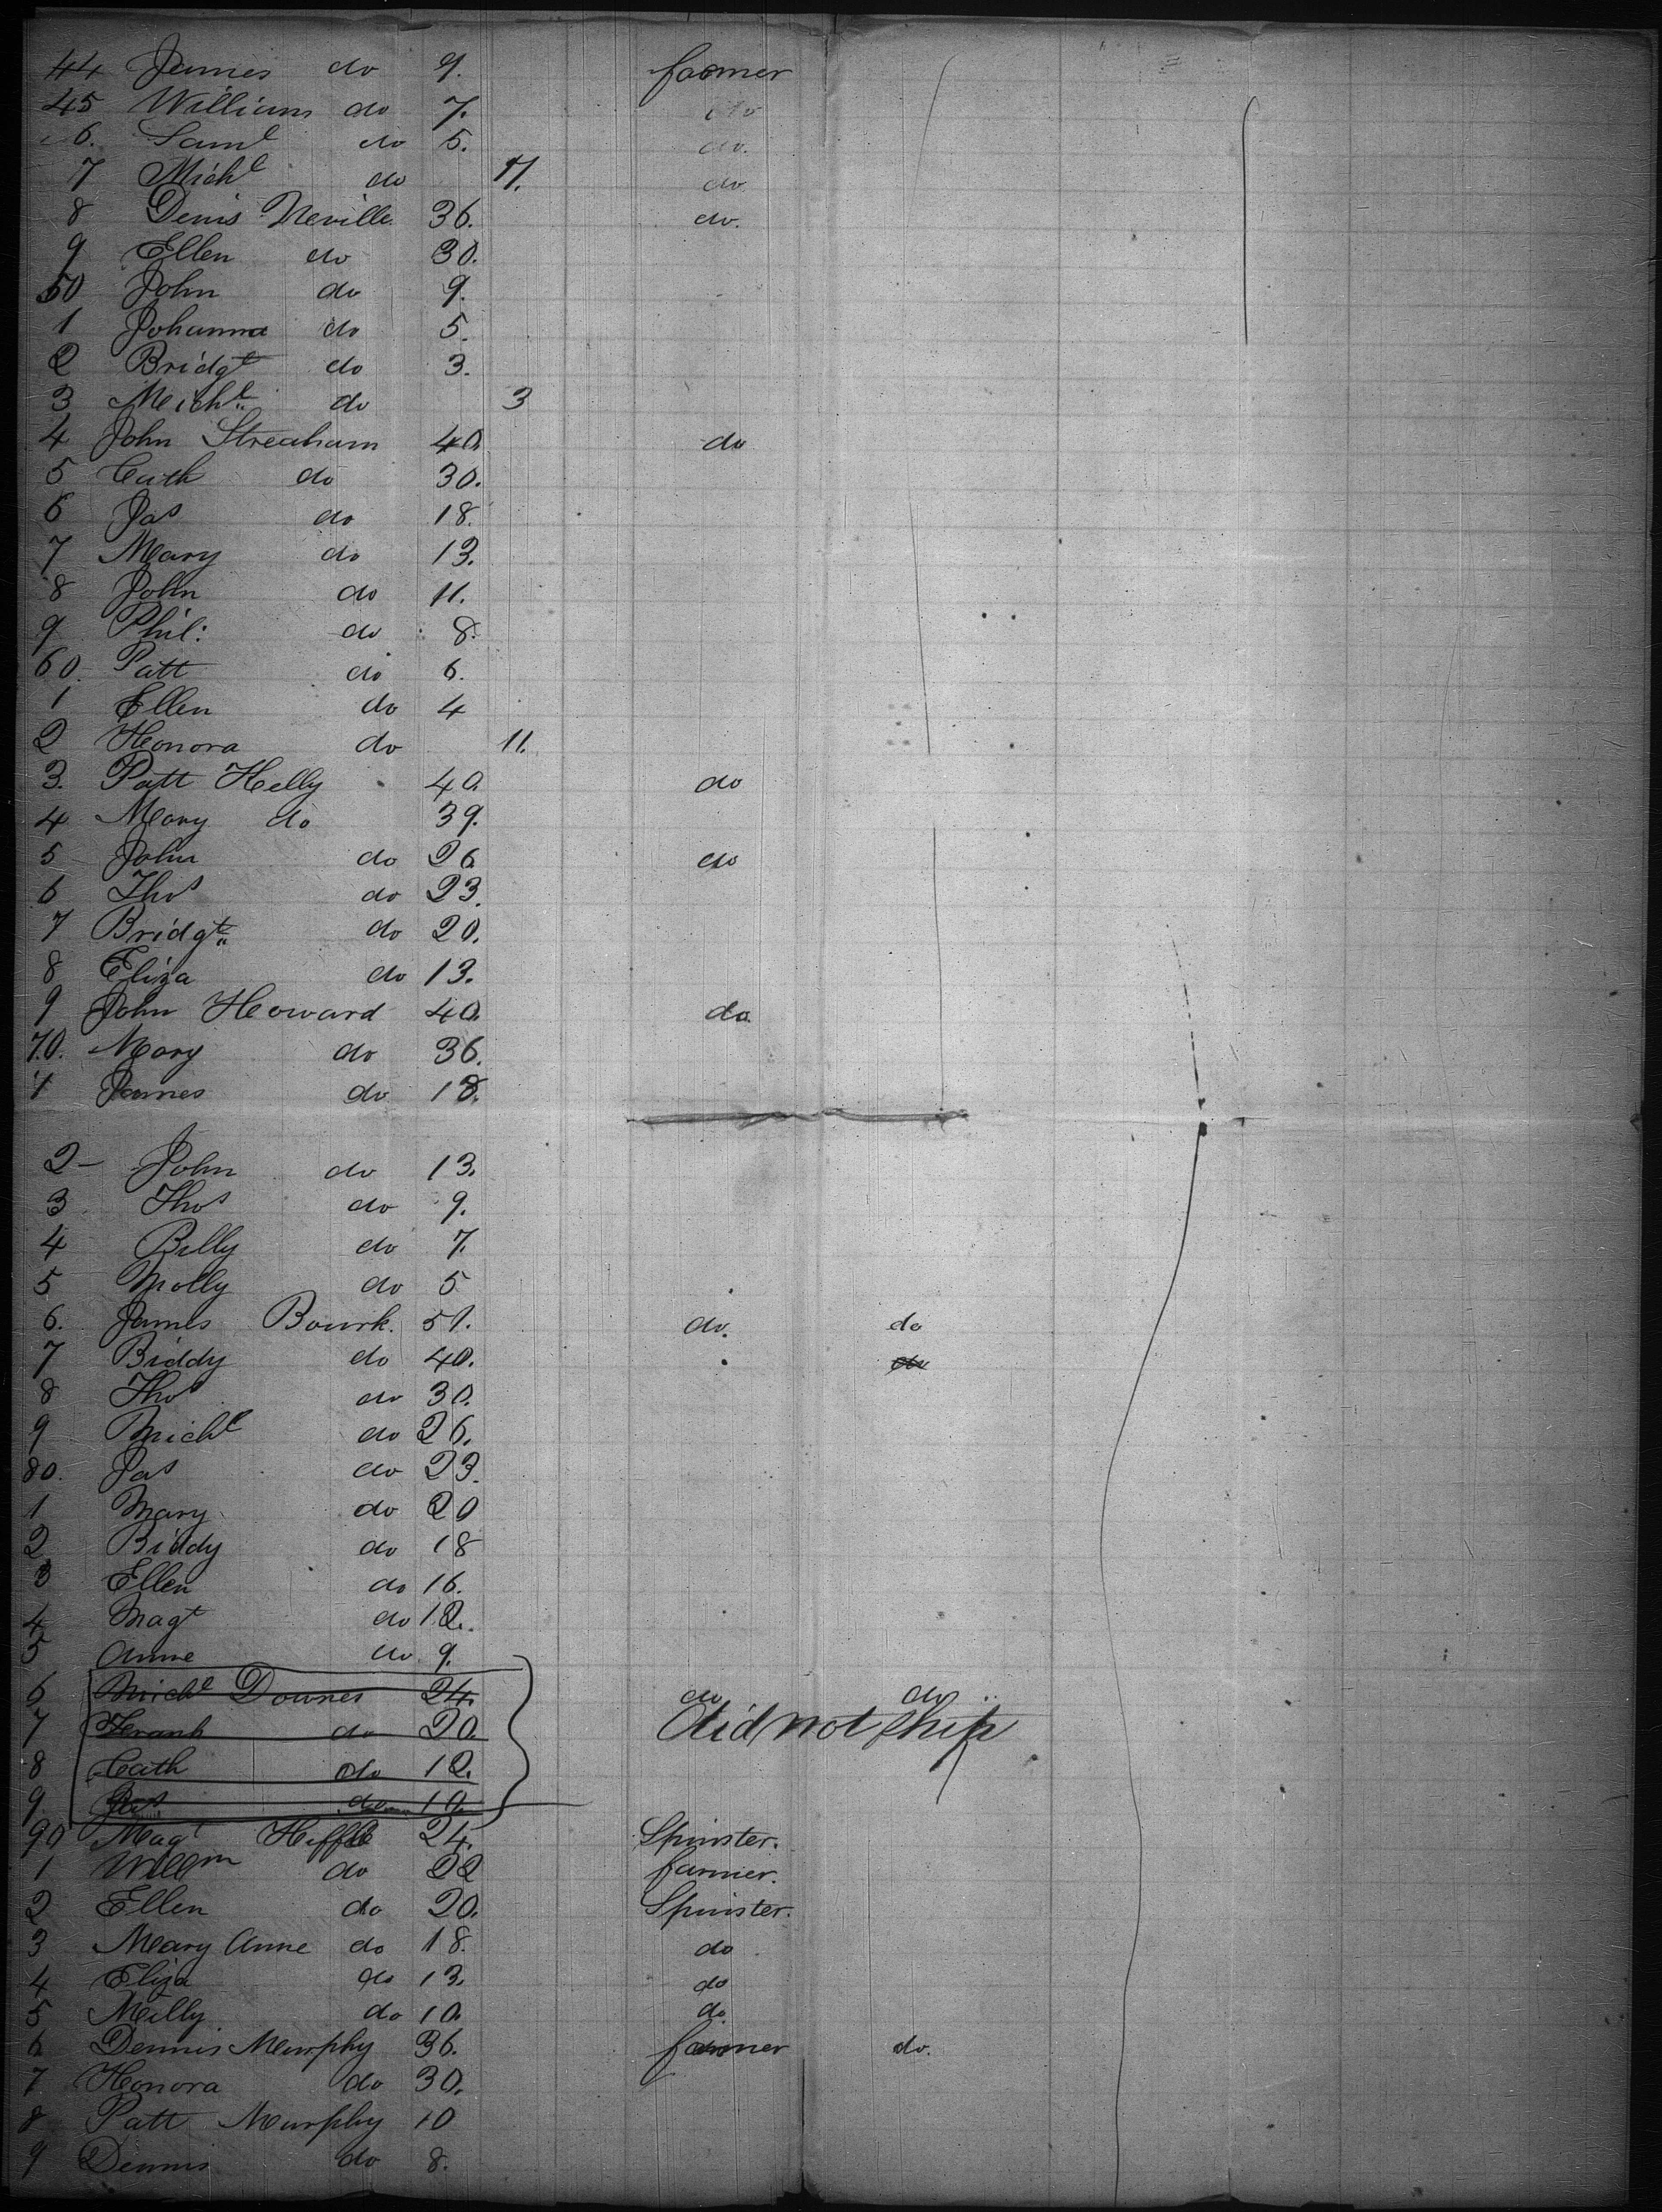 44 James do 9. farmer
45 William do 7. do
6. Saml do 5. do.
7 Michl do 7. do
8 Denis Neville 36. do.
9 Ellen do 30.
50 John do 9.
1 Johanna do 5.
2 Bridgt do 3.
3 Michl do 3
4 John Streaham 40. do
5 Cath do 30.
6 Jas do 18.
7 Mary do 13.
8 John do 11.
9 Phil: do 8.
60. Patt do 6.
1 Ellen do 4
2 Honora do 11.
3. Patt Helly 40. do
4 Mary do 39.
5 John do 26 do
6 Thos do 23.
7 Bridgt do 20.
8 Eliza do 13.
9 John Howard 40. do.
70. Mary do 36.
1 James do 18.
2 John do 13.
3 Thos do 9.
4 Billy do 7.
5 Molly do 5
6. James Bourk. 51. do. do
7 Biddy do 40. do
8 Thos do 30.
9 Michl do 26.
80. Jas do 23.
1 Mary do 20
2 Biddy do 18
3 Ellen do 16.
4 Magt do 12.
5 Anne do 9.
6 Michl Downes 24. do do
7 Frank do 20. did not ship
8 Cath do 12.
9. Jas do 10.
90 Magt 24. Spinster.
1 Willm do 22 farmer.
2 Ellen do 20. Spinster.
3 Mary Anne do 18. do
4 Eliza do 13. do
5 Milly do 10. do.
6 Dennis Murphy 36. farmer do.
7 Honora do 30.
8 Patt Murphy 10
9 Dennis do 8.